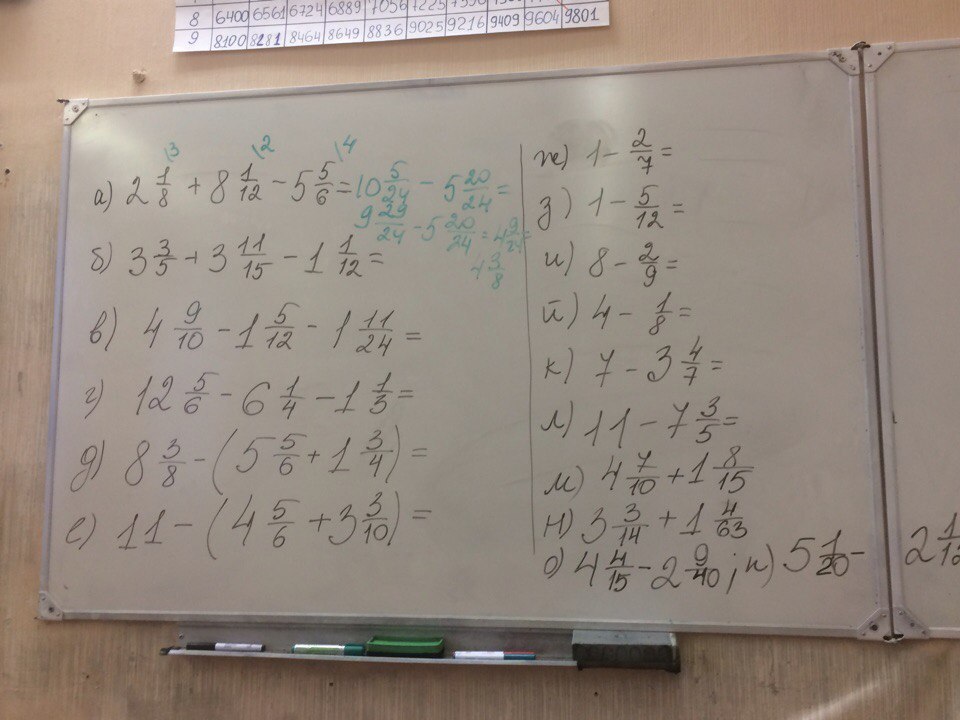 8 6400 6561 6724 6889 7056 7225
9 8100 8281 8464 8649 8836 9025 9216 9409 9604 9801
\3 \2 \4
а) 2 1/8 + 8 1/12 - 5 5/6 = 10 5/24 - 5 20/24 =
9 29/24 - 5 20/24 = 4 9/24 =
4 3/8
б) 3 3/5 + 3 11/15 - 1 1/12 =
в) 4 9/10 - 1 5/12 - 1 11/24 =
г) 12 5/6 - 6 1/4 - 1 1/3 =
д) 8 3/8 - (5 5/6 + 1 3/4) =
е) 11 - (4 5/6 + 3 3/10) =
ж) 1 - 2/7 =
з) 1 - 5/12 =
и) 8 - 2/9 =
й) 4 - 1/8 =
к) 7 - 3 4/7 =
л) 11 - 7 3/5 =
м) 4 7/10 + 1 8/15
н) 3 3/14 + 1 4/63
о) 4 4/15 - 2 9/40; п) 5 1/20 - 2 1/12